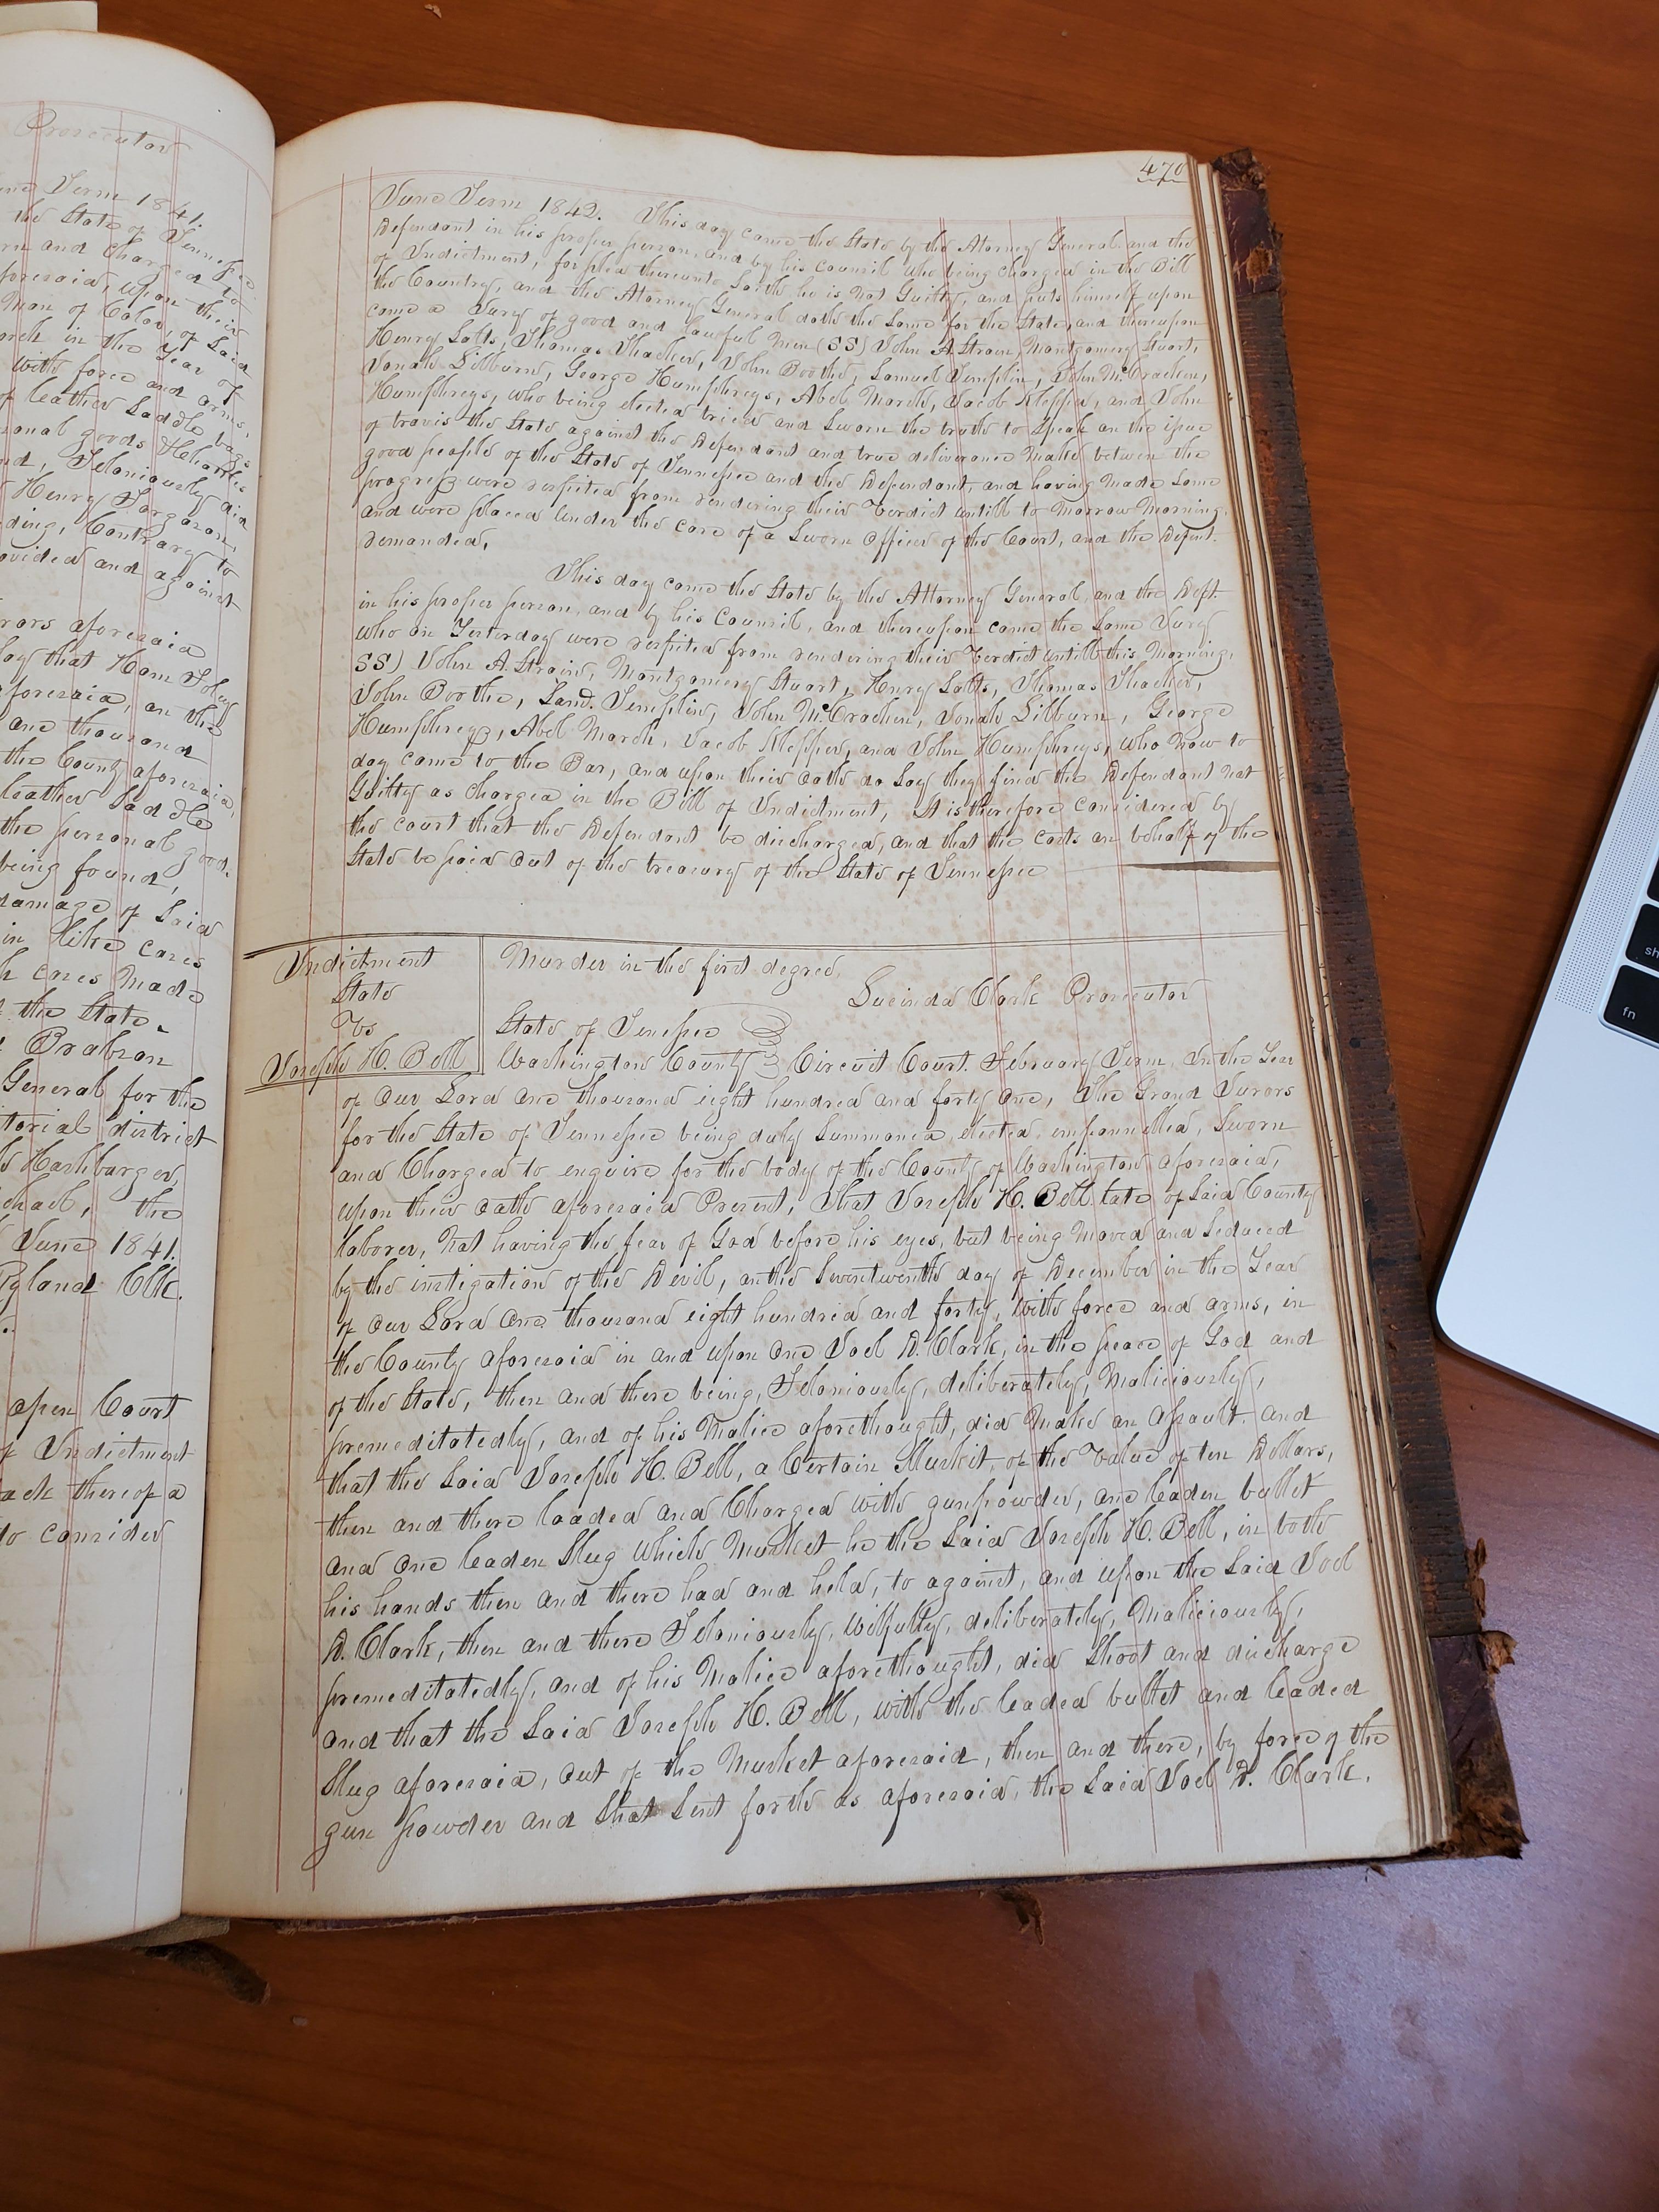 Prosecutor
June Term 1841.
the State of Tennessee
and Charged to
aforesaid, upon their
Man of Color, of Said
March in the Year of
with force and arms,
of leather Saddle bags
personal goods & Chattles
Feloniously did
Henry
Contrary to
provided and against
Jurors aforesaid
Say that Ham
aforesaid, on the
one thousand
the County aforesaid,
leather Saddle
the personal goods
being found,
damage of Said
in like cases
cases Made
the State.
Brabson
General for the
district
Harshbarger,
the
June 1841.
Ryland Clk.
open Court
of Indictment
back thereof a
to consider
470
June Term 1842. This day came the State by the Atorney General and the
Defendant in his proper person, and by his Council who being charged in the Bill
of Indictment, for plea thereunto Saith he is Not Guilty, and puts himself upon
the Country, and the Atorney General doth the Same for the State, and thereupon
came a Jury of good and lawful Men (SS) John A. Strain, Montgomery Stuart,
Henry Salts, Thomas Thacker, John Boothe, Samuel Templin, John McCracken,
Jonah Lilburn, George Humphreys, Abel March, Jacob Klepper, and John
Humphreys, who being elected tried and Sworn the truth to Speak on the issue
of travis the State against the Defendant and true deliverance Make between the
good people of the State of Tennessee and the Defendant, and having Made Some
progress were respited from rendering their Verdict untill to Morrow Morning,
and were placed Under the care of a Sworn Officer of the Court, and the Defent.
remanded,
This day came the State by the Attorney General, and the Deft.
in his proper person, and by his Council, and thereupon came the Same Jury
who on Yesterday were respited from rendering their Verdict untill this Morning,
SS) John A. Strain, Montgomery Stuart, Henry Salts, Thomas Thacker,
John Boothe, Saml. Templin, John McCracken, Jonah Lilburn, George
Humphreys, Abel March, Jacob Klepper, and John Humphreys, who Now to
day came to the Bar, and upon their oath do Say they find the Defendant Not
Guilty as charged in the Bill of Indictment, It is therefore considered by
the court that the Defendant be discharged, and that the costs on behalf of the
State be paid out of the treasury of the State of Tennessee
Indictment
State
Vs
Joseph H. Bell
Murder in the first degree,
Lucinda Clark Prosecutor
State of Tenessee
Washington County Circuit Court. February Term, In the Year
of Our Lord One thousand eight hundred and forty one, The Grand Jurors
for the State of Tennessee being duly Summoned, elected, empannelled, Sworn
and Charged to enquire for the body of the County of Washington aforesaid,
upon their oath aforesaid Present, That Joseph H. Bell late of Said County
laborer, Not having the fear of God before his eyes, but being Moved and Seduced
by the instigation of the Devil, on the day of December in the Year
of Our Lord One thousand eight hundred and forty, with force and arms, in
the County aforesaid in and upon One Joel D. Clark, in the peace of God and
of the State, then and there being, Feloniously, deliberately, Maliciously,
premeditatedly, and of his Malice aforethought, did Make an assault, and
that the Said Joseph H. Bell, a Certain Muskit, of the Value of ten Dollars,
then and there loaded and Charged with gunpowder, one leaden bullet
and one leaden Slug which Musket he the Said Joseph H. Bell, in both
his hands then and there had and held, to against, and upon the Said Joel
D. Clark, then and there Feloniously, Wilfully, deliberately, Maliciously,
premeditatedly, and of his Malice aforethought, did Shoot and discharge
and that the Said Joseph H. Bell, with the leaded bullet and leaded
Slug aforesaid, out of the Musket aforesaid, then and there, by force of the
gun powder and Shot Sent forth as aforesaid, the Said Joel D. Clark,
sh
fn